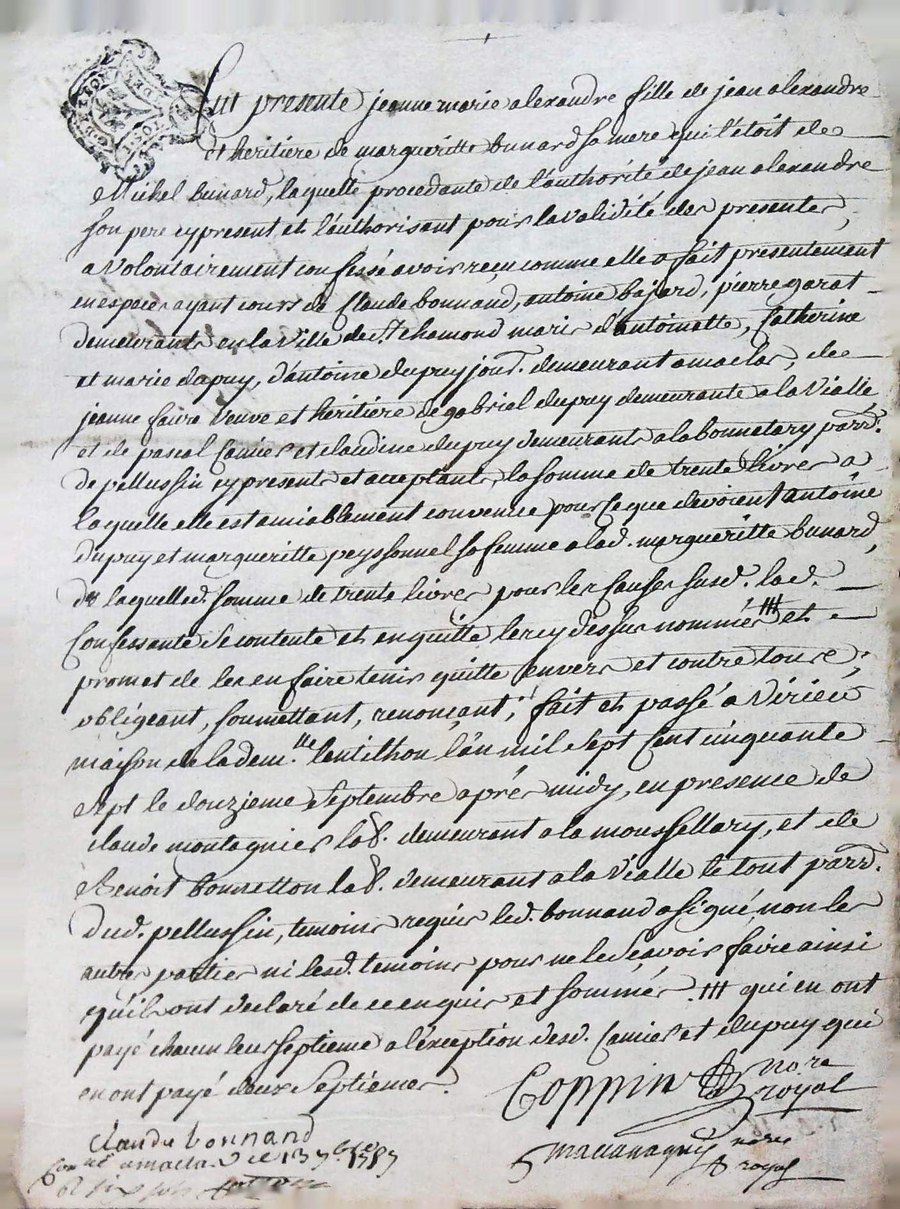 Fut presente jeanne marie alexandre fille de jean alexandre
et heritiere de margueritte bunard sa mere qui l'étoit de
Michel bunard, laquelle procedante de l'authorité de jean alexandre
son pere cy present et l'authorisant pour la validité des presentes,
a volontairement confessé avoir reçu comme elle a fait presentement
en especes ayant cours de Claude bonnand, antoine bajard, pierre garat
demeurants en la ville de St. chamond maris d'antoinette, Catherine
et marie dupuy, d'antoine dupuy jour. demeurant a maclas, de
jeanne faure veuve et heritiere de gabriel dupuy demeurante a la Vialle
et de pascal Camier et claudine dupuy demeurants a la bonnetary parr.
de pellussin cy presents et acceptants, la somme de trente livres a
laquelle elle est amiablement convenue pour ce que devoient antoine
dupuy et margueritte peyssonnel sa femme a lad. margueritte bunard,
de laquelled. somme de trente livres pour les causes susd. lad.
Confessante se contente et en quitte les cy dessus nommés ttt et
promet de les en faire tenir quitte envers et contre tous;
obligeant, soumettant, renonçant; fait et passé a Virieu
maison de la dem.lle lentilhon l'an mil sept Cent cinquante
sept le douzieme Septembre après midy, en presence de
claude montagnier lab. demeurant a la moussellary, et de
Benoit bonnetton lab. demeurant a la Vialle le tout parr.
dud. pellussin, temoins requis led. bonnand a signé non les
autres parties ni lesd. temoins pour ne le sçavoir faire ainsi
qu'ils ont declaré de ce enquis et sommés. ttt qui en ont
payé chacun leur septieme a l'exception desd. Camier et dupuy qui
en ont payé deux septiemes.
Coppin nore
royal
claude bonnand
a maclas ce 13 7bre 1757
nore
royal